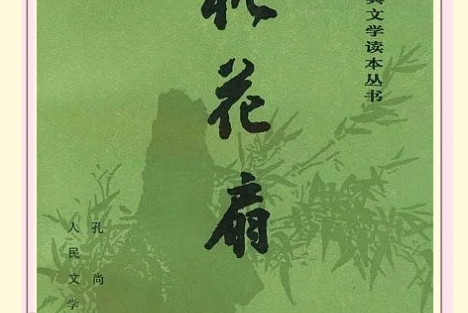 典文学读本丛书
桃花扇
孔尚
人民文学